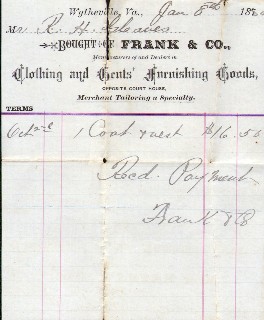 Wytheville, Va., Jan 8th 18
Mr R. H. Gleaves
BOUGHT OF FRANK & CO.,
Manufacturers of and Dealers in
Clothing and Gents' Furnishing Goods,
OPPOSITE COURT HOUSE.
Merchant Tailoring a Specialty.
TERMS
Oct 1 Coat & vest $16.50
Recd. Payment
Frank & Co